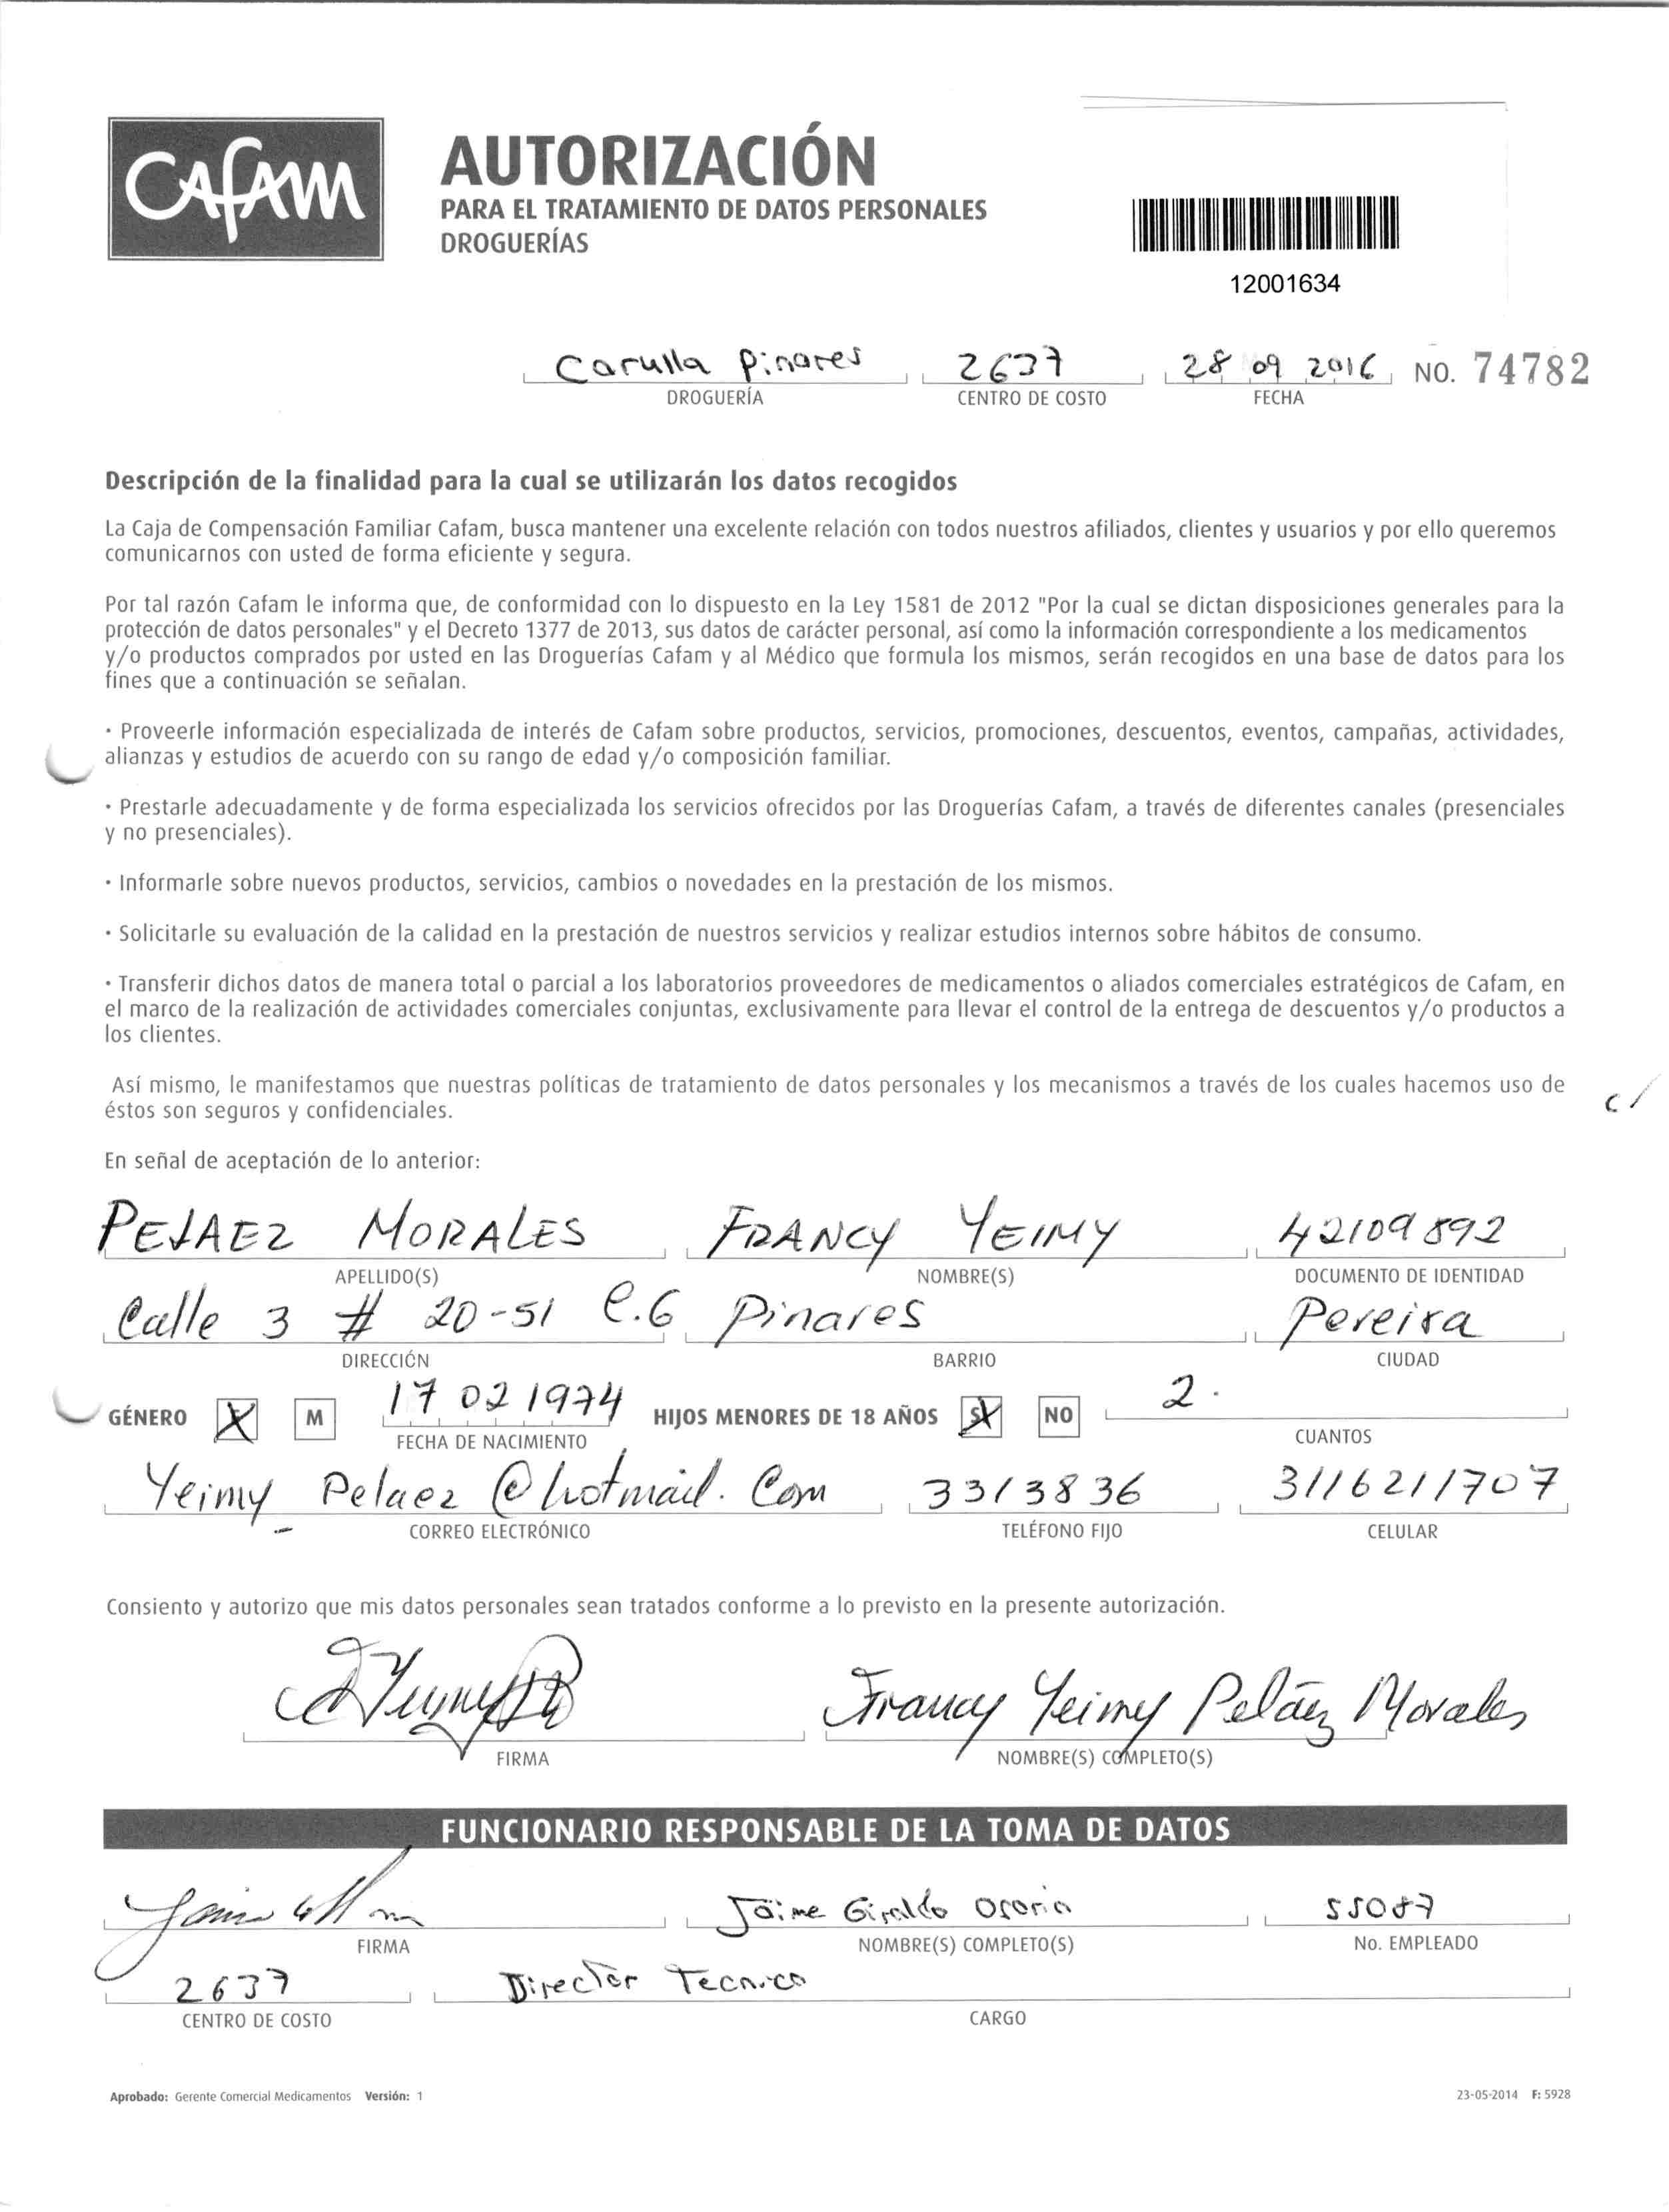 CAFAM
AUTORIZACIÓN
PARA EL TRATAMIENTO DE DATOS PERSONALES
DROGUERÍAS
12001634
Carulla Pinares 2637 28 09 2016 NO. 74782
DROGUERÍA CENTRO DE COSTO FECHA
Descripción de la finalidad para la cual se utilizarán los datos recogidos
La Caja de Compensación Familiar Cafam, busca mantener una excelente relación con todos nuestros afiliados, clientes y usuarios y por ello queremos
comunicarnos con usted de forma eficiente y segura.
Por tal razón Cafam le informa que, de conformidad con lo dispuesto en la Ley 1581 de 2012 "Por la cual se dictan disposiciones generales para la
protección de datos personales" y el Decreto 1377 de 2013, sus datos de carácter personal, así como la información correspondiente a los medicamentos
y/o productos comprados por usted en las Droguerías Cafam y al Médico que formula los mismos, serán recogidos en una base de datos para los
fines que a continuación se señalan.
· Proveerle información especializada de interés de Cafam sobre productos, servicios, promociones, descuentos, eventos, campañas, actividades,
alianzas y estudios de acuerdo con su rango de edad y/o composición familiar.
· Prestarle adecuadamente y de forma especializada los servicios ofrecidos por las Droguerías Cafam, a través de diferentes canales (presenciales
y no presenciales).
· Informarle sobre nuevos productos, servicios, cambios o novedades en la prestación de los mismos.
· Solicitarle su evaluación de la calidad en la prestación de nuestros servicios y realizar estudios internos sobre hábitos de consumo.
· Transferir dichos datos de manera total o parcial a los laboratorios proveedores de medicamentos o aliados comerciales estratégicos de Cafam, en
el marco de la realización de actividades comerciales conjuntas, exclusivamente para llevar el control de la entrega de descuentos y/o productos a
los clientes.
Así mismo, le manifestamos que nuestras políticas de tratamiento de datos personales y los mecanismos a través de los cuales hacemos uso de
éstos son seguros y confidenciales.
En señal de aceptación de lo anterior:
PELAEZ MORALES FRANCY YEIMY 42109892
APELLIDO(S) NOMBRE(S) DOCUMENTO DE IDENTIDAD
Calle 3 # 20-51 C.6 Pinares Pereira
DIRECCIÓN BARRIO CIUDAD
GÉNERO X M 17 02 1974 HIJOS MENORES DE 18 AÑOS SI NO 2.
FECHA DE NACIMIENTO CUANTOS
Yeimy_Pelaez@hotmail.Com 3313836 3116211707
CORREO ELECTRÓNICO TELÉFONO FIJO CELULAR
Consiento y autorizo que mis datos personales sean tratados conforme a lo previsto en la presente autorización.
Francy Yeimy Peláez Morales
FIRMA NOMBRE(S) COMPLETO(S)
FUNCIONARIO RESPONSABLE DE LA TOMA DE DATOS
Jaime Giraldo Osorio 55087
FIRMA NOMBRE(S) COMPLETO(S) No. EMPLEADO
2637 Director Tecnico
CENTRO DE COSTO CARGO
Aprobado: Gerente Comercial Medicamentos Versión: 1 23-05-2014 F: 5928